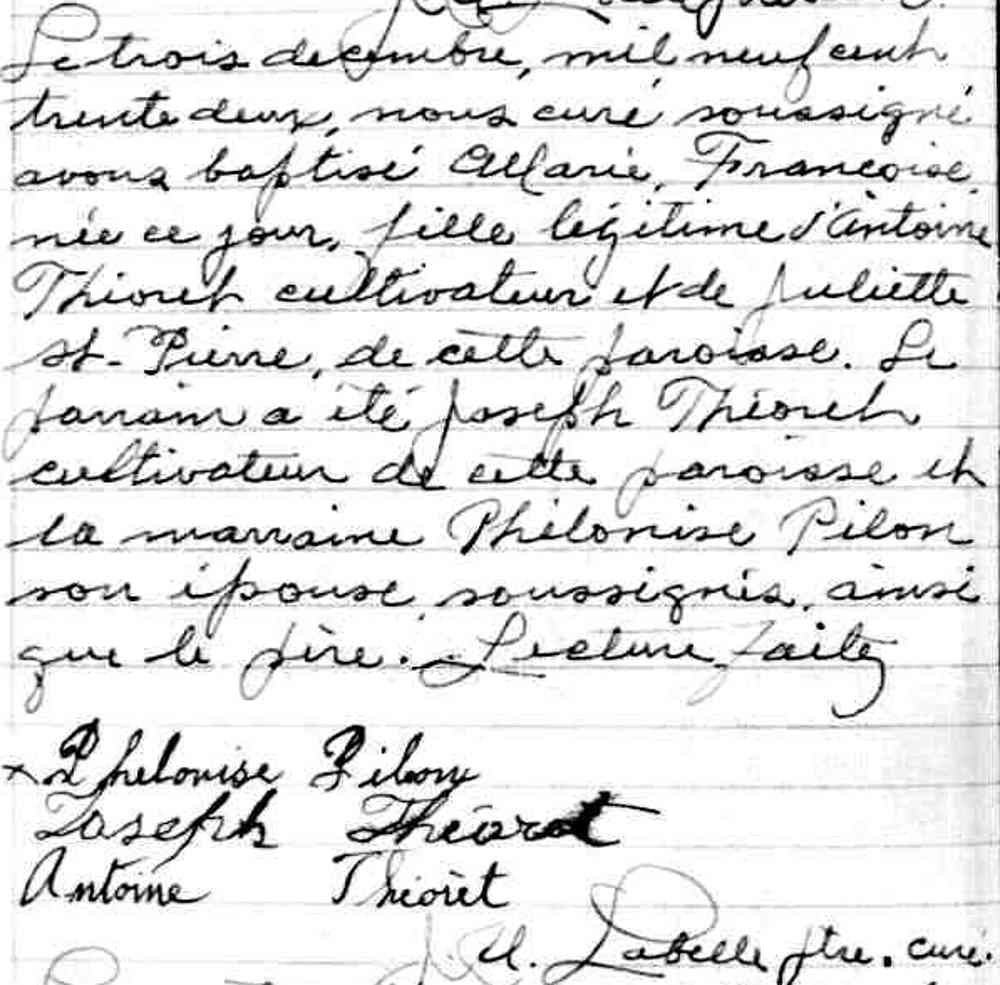 Le trois decembre, mil neuf cent
trente deux, nous curé soussigné
avons baptisé Marie, Françoise,
née ce jour, fille légitime d'Antoine
Théoret cultivateur et de Juliette
St-Pierre, de cette paroisse. Le
parrain a été Joseph Théoret
cultivateur de cette paroisse et
la marraine Phélonise Pilon
son épouse soussignés, ainsi
que le père. Lecture faite
x Phelonise Pilon
Joseph Théoret
Antoine Théorêt
Labelle ptre. curé.